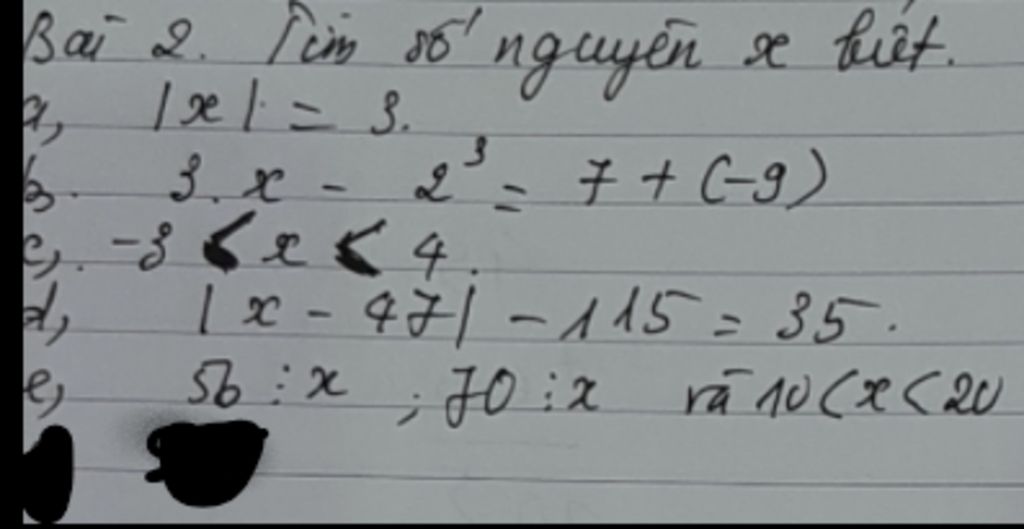 Bài 2. Tìm số nguyên x biết.
a, |x| = 3.
b. 3.x - 2³ = 7 + (-9)
c, -3 < x < 4.
d, |x - 47| - 115 = 35.
e, 56 ⋮ x ; 70 ⋮ x và 10 < x < 20